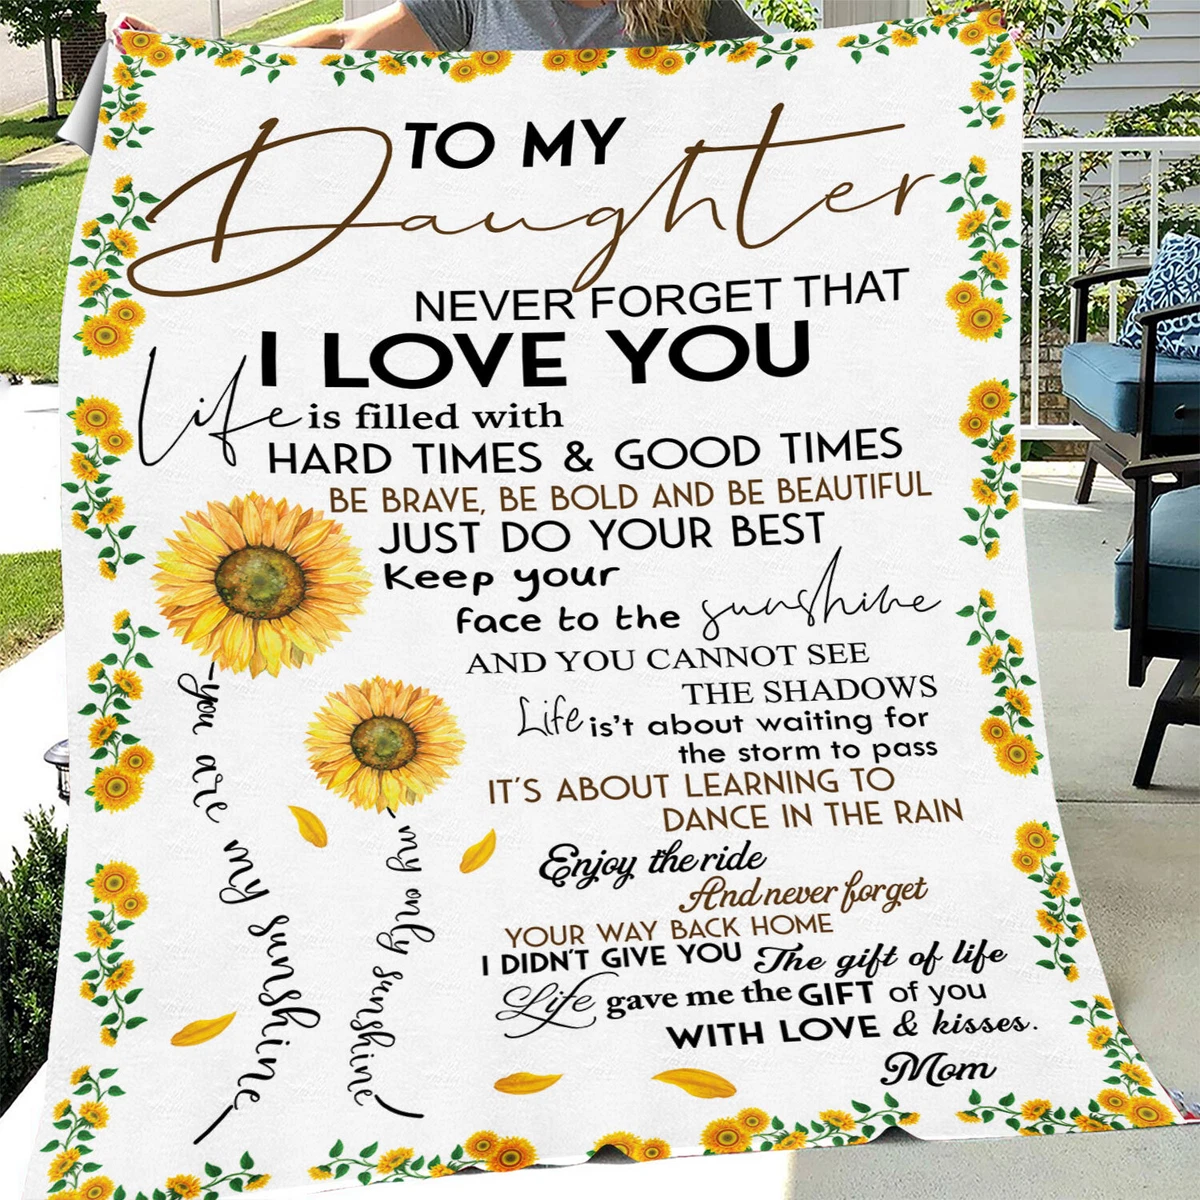 TO MY
Daughter
NEVER FORGET THAT
I LOVE YOU
Life is filled with
HARD TIMES & GOOD TIMES
BE BRAVE, BE BOLD AND BE BEAUTIFUL
JUST DO YOUR BEST
Keep your
face to the sunshine
AND YOU CANNOT SEE
THE SHADOWS
Life is't about waiting for
the storm to pass
IT'S ABOUT LEARNING TO
DANCE IN THE RAIN
Enjoy the ride
And never forget
YOUR WAY BACK HOME
I DIDN'T GIVE YOU The gift of life
Life gave me the GIFT of you
WITH LOVE & kisses.
Mom
you are my sunshine
my only sunshine